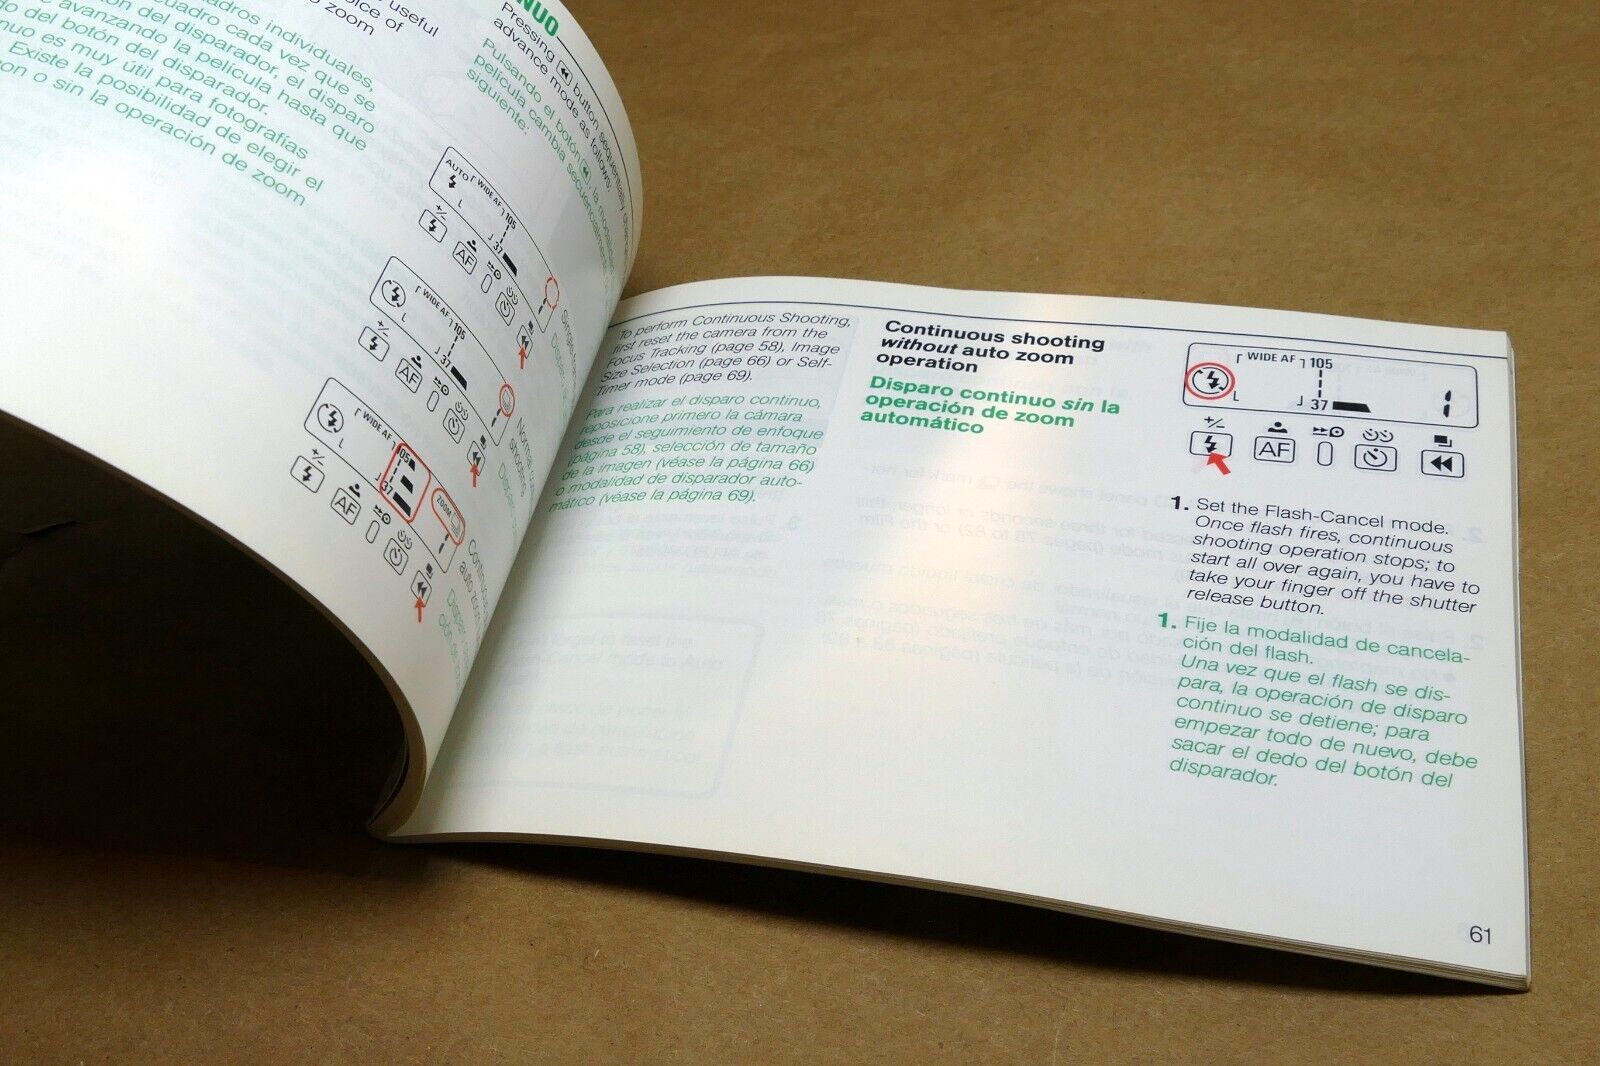 useful
oice of
zoom
adros individuales,
cuadro cada vez que se
ón del disparador, el disparo
e avanzando la película hasta que
do del botón del disparador.
nuo es muy útil para fotografías
Existe la posibilidad de elegir el
con o sin la operación de zoom
NUO
Pressing button sequentially
advance mode as follows:
Pulsando el botón , la modalidad
película cambia secuencialmente
siguiente:
AUTO
WIDE AF
105
37
+/–
AF
WIDE AF
105
37
+/–
AF
Normal
shooting
WIDE AF
105
37
ZOOM
+/–
AF
Continuous
auto zoom
To perform Continuous Shooting,
first reset the camera from the
Focus Tracking (page 58), Image
Size Selection (page 66) or Self-
Timer mode (page 69).
Para realizar el disparo continuo,
reposicione primero la cámara
desde el seguimiento de enfoque
(página 58), selección de tamaño
de la imagen (véase la página 66)
o modalidad de disparador auto-
mático (véase la página 69).
Continuous shooting
without auto zoom
operation
Disparo continuo sin la
operación de zoom
automático
WIDE AF
105
37
1
+/–
AF
1. Set the Flash-Cancel mode.
Once flash fires, continuous
shooting operation stops; to
start all over again, you have to
take your finger off the shutter
release button.
1. Fije la modalidad de cancela-
ción del flash.
Una vez que el flash se dis-
para, la operación de disparo
continuo se detiene; para
empezar todo de nuevo, debe
sacar el dedo del botón del
disparador.
61